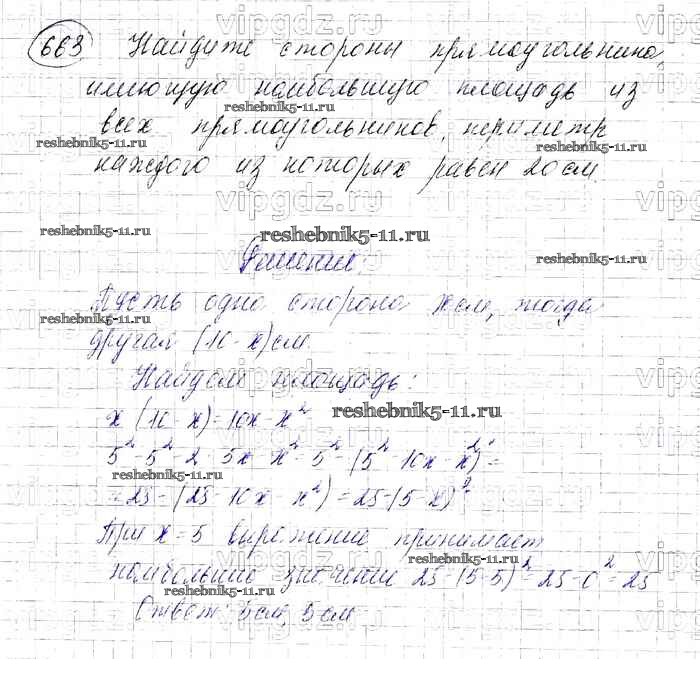 663 Найдите стороны прямоугольника,
имеющую наибольшую площадь из
всех прямоугольников, периметр
каждого из которых равен 20 см.
Решение:
Пусть одна сторона x см, тогда
другая (10 - x) см
Найдем площадь:
x (10 - x) = 10x - x²
5² - 5² 2 5x x² = 5² - (5² 10x x)² =
= 25 - (25 - 10x x²) = 25 - (5 - x)²
При x = 5 выражение принимает
наибольшие значение 25 - (5-5)² = 25 - 0² = 25
Ответ: 5 см, 5 см
vipgdz.ru
reshebnik5-11.ru
reshebnik5-11.ru
reshebnik5-11.ru
reshebnik5-11.ru
reshebnik5-11.ru
reshebnik5-11.ru
reshebnik5-11.ru
reshebnik5-11.ru
reshebnik5-11.ru
reshebnik5-11.ru